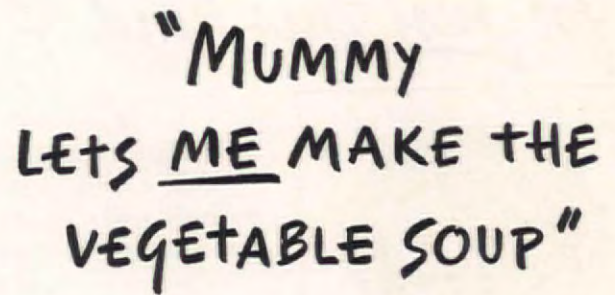 "MUMMY
LETS ME MAKE THE
VEGETABLE SOUP"